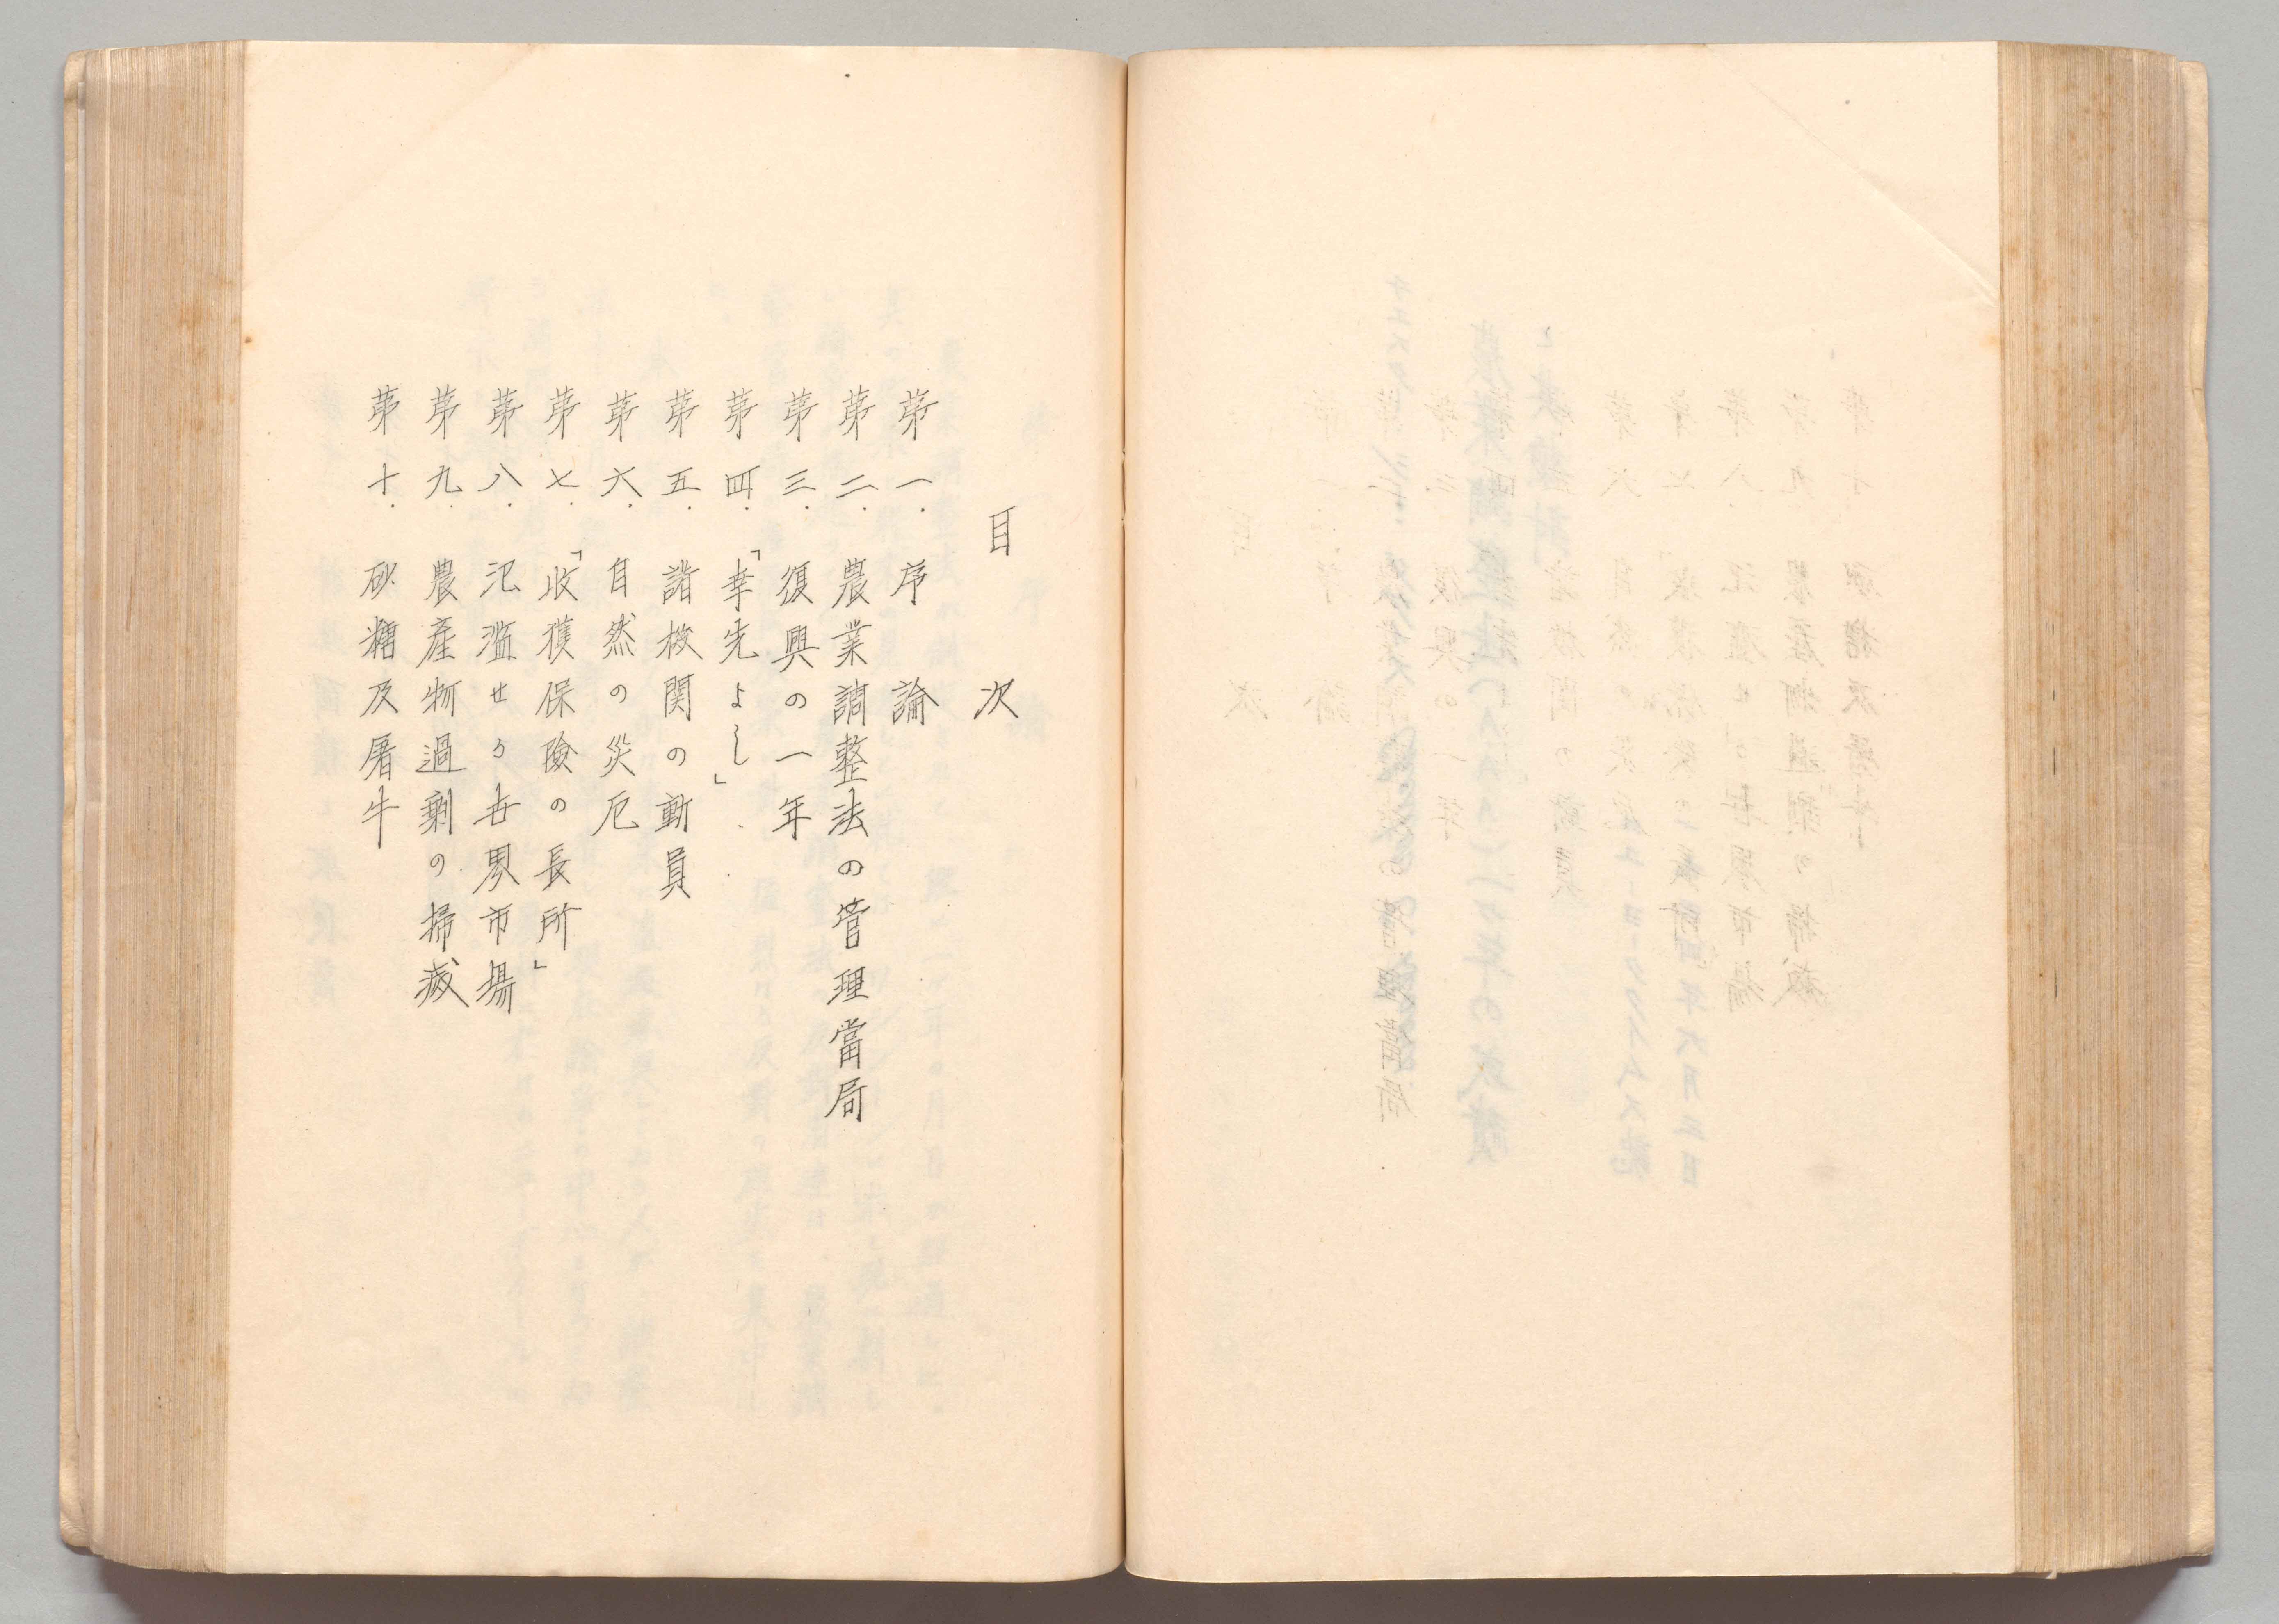 目次
第一．序論
第二．農業調整法の管理當局
第三．復興の一年
第四．「幸先よし」
第五．諸機関の動員
第六．自然の災厄
第七．「收穫保險の長所」
第八．汜濫せる世界市場
第九．農産物過剰の掃滅
第十．砂糖及屠牛